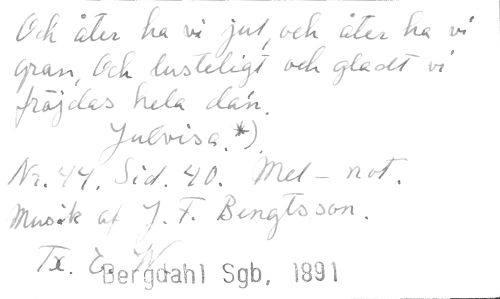 Och åter ha vi jul, och åter ha vi
gran, Och lusteligt och gladt vi
fröjdas hela da'n.
Julvisa. *)
Nr. 44. Sid. 40. Mel-not.
Musik af J. F. Bengtsson.
Tx. E. W.
Bergdahl Sgb, 1891